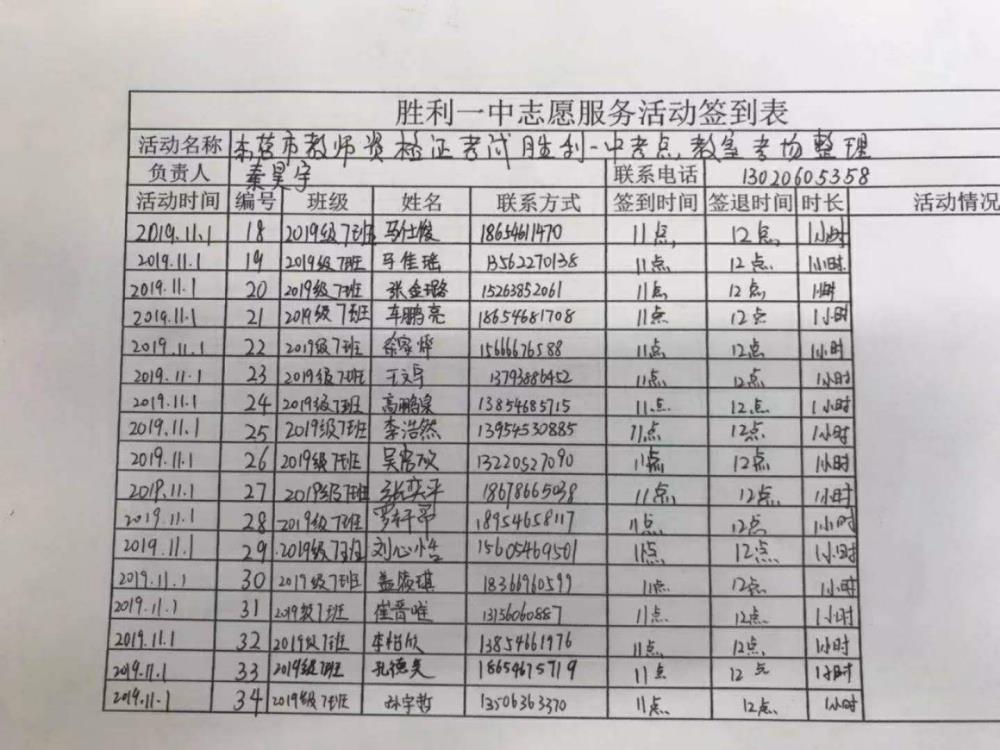 胜利一中志愿服务活动签到表
活动名称 东营市教师资格证考试胜利一中考点,教室考场整理
负责人 秦昊宇 联系电话 13020605358
活动时间 编号 班级 姓名 联系方式 签到时间 签退时间 时长 活动情况
2019.11.1 18 2019级7班 马仕俊 18654611470 11点, 12点, 1小时
2019.11.1 19 2019级7班 马佳瑶 13562270138 11点 12点. 1小时
2019.11.1 20 2019级7班 张金璐 15263852061 11点 12点, 1小时
2019.11.1 21 2019级7班 车鹏亮 18654681708 11点 12点 1小时
2019.11.1 22 2019级7班 15666676588 11点 12点 1小时
2019.11.1 23 2019级7班 13793886452 11点. 12点 1小时
2019.11.1 24 2019级7班 13854685715 11点. 12点. 1小时
2019.11.1 25 2019级7班 李浩然 13954530885 11点 12点 1小时
2019.11.1 26 2019级7班 13220527090 11点 12点 1小时
2019.11.1 27 2019级7班 张奕平 18678665038 11点. 12点. 1小时
2019.11.1 28 2019级7班 18954658117 11点. 12点. 1小时
2019.11.1 29 2019级7班 15605469501 11点 12点. 1小时
2019.11.1 30 2019级7班 18366960599 11点. 12点. 1小时
2019.11.1 31 2019级7班 崔晋唯 13156060887 11点 12点. 1小时
2019.11.1 32 2019级7班 李怡欣 13854661976 11点. 12点. 1小时
2019.11.1 33 2019级7班 孔德昊 18654675719 11点 12点 1小时
2019.11.1 34 2019级7班 孙宇哲 13506363370 11点. 12点. 1小时